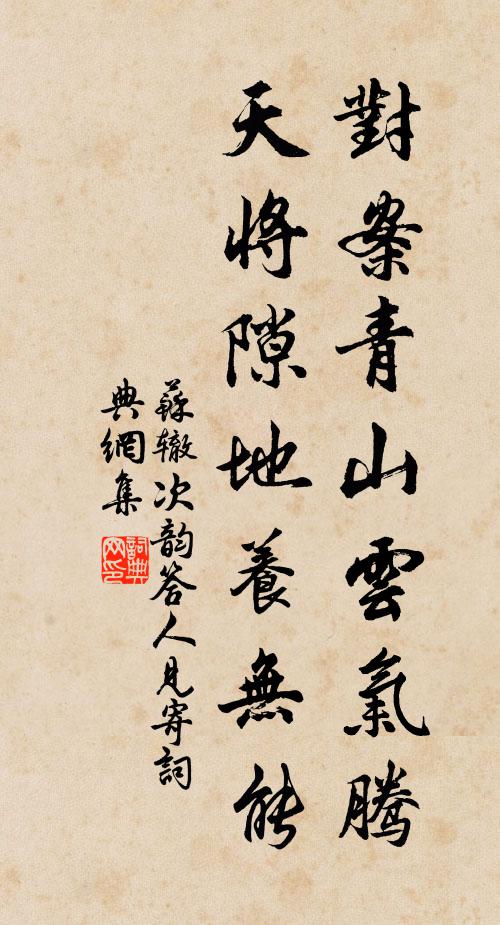 對案青山雲氣騰
天將隙地養無能
蘇辙次韵答人見寄詞
典網集
詞典
网印